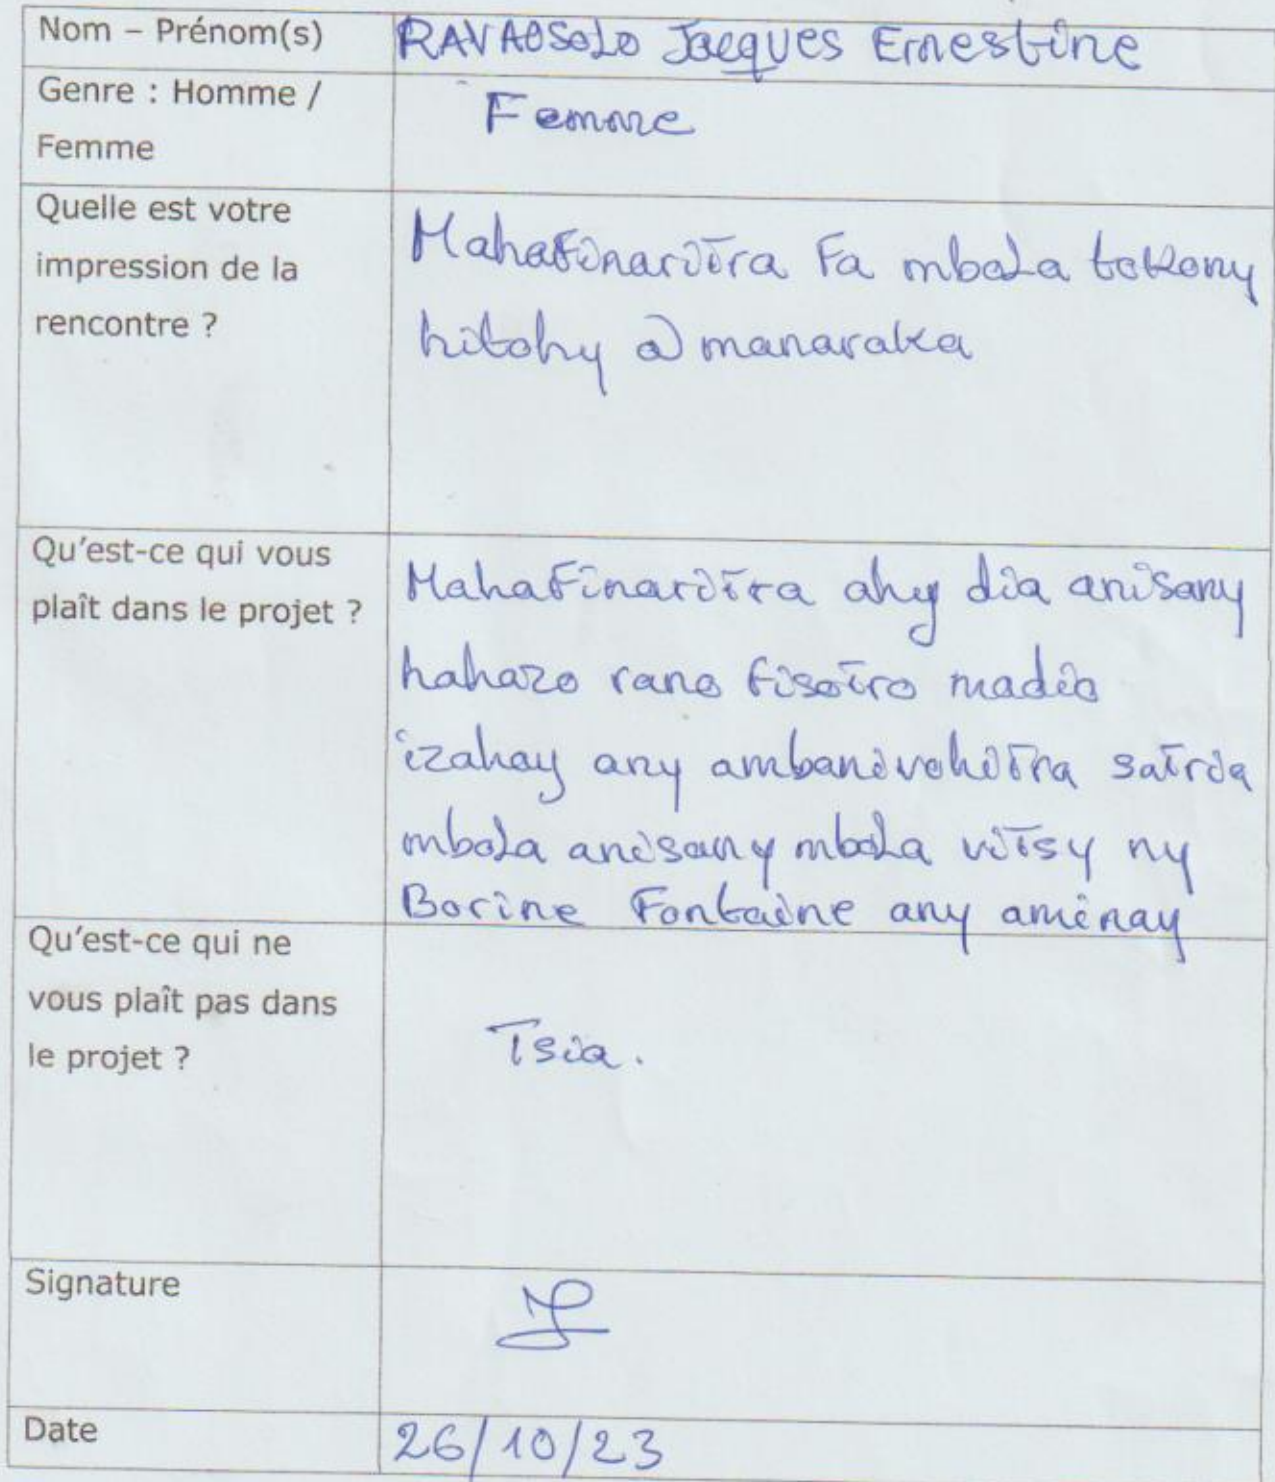 Nom – Prénom(s)
RAVAOSOLO Jacques Ernestine
Genre : Homme /
Femme
Femme
Quelle est votre
impression de la
rencontre ?
Mahafinaritra Fa mbola tokony
hitohy @ manaraka
Qu'est-ce qui vous
plaît dans le projet ?
Mahafinaritra ahy dia anisany
hahazo rano fisotro madio
izahay any ambanivohitra satria
mbola anisany mbola vitsy ny
Borine Fontaine any aminay
Qu'est-ce qui ne
vous plaît pas dans
le projet ?
Tsia.
Signature
Date
26/10/23